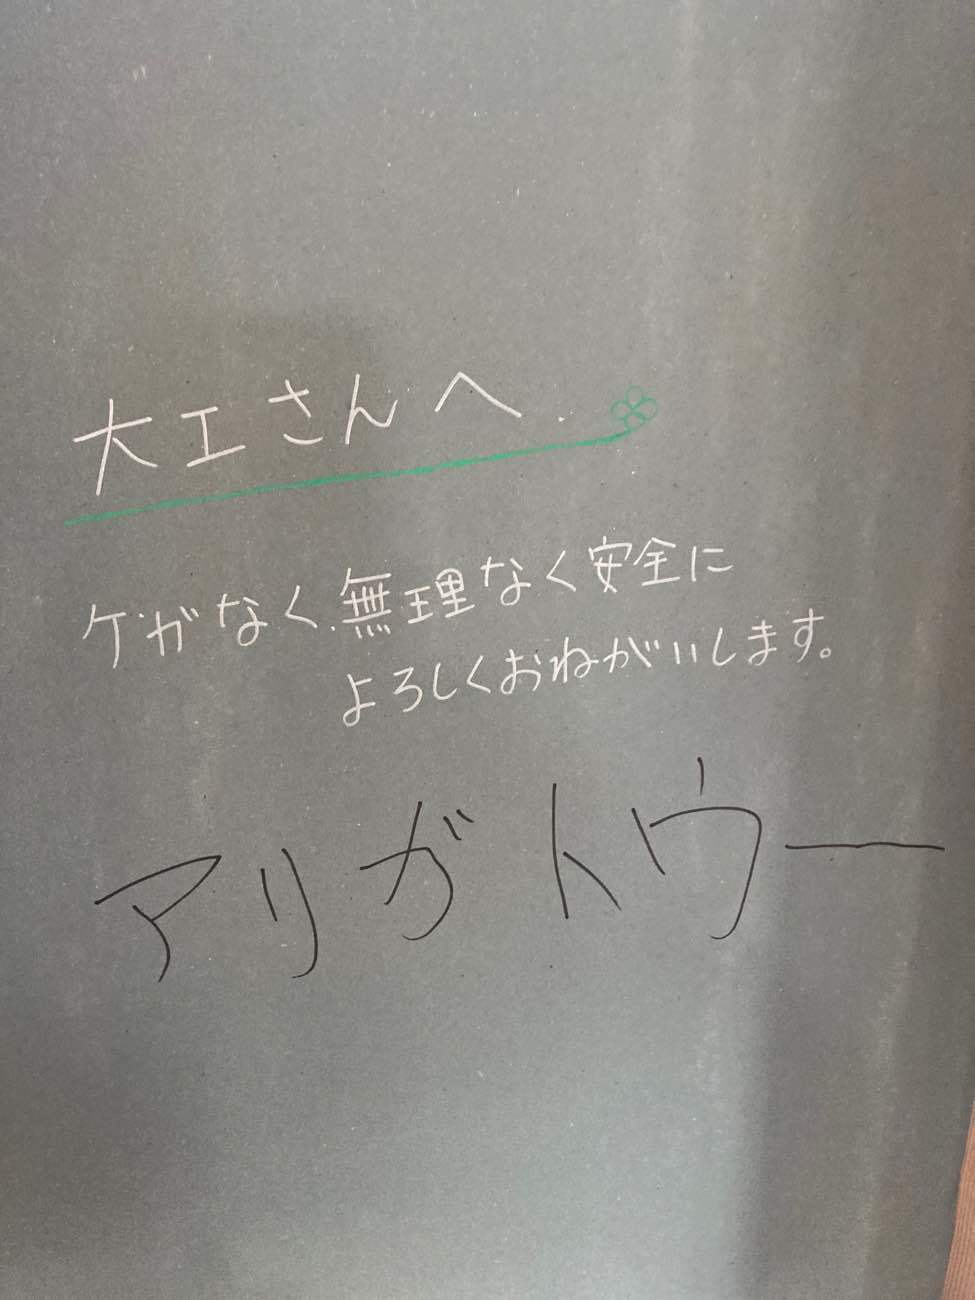 大工さんへ.
ケガなく.無理なく安全に
よろしくおねがいします。
アリガトウー